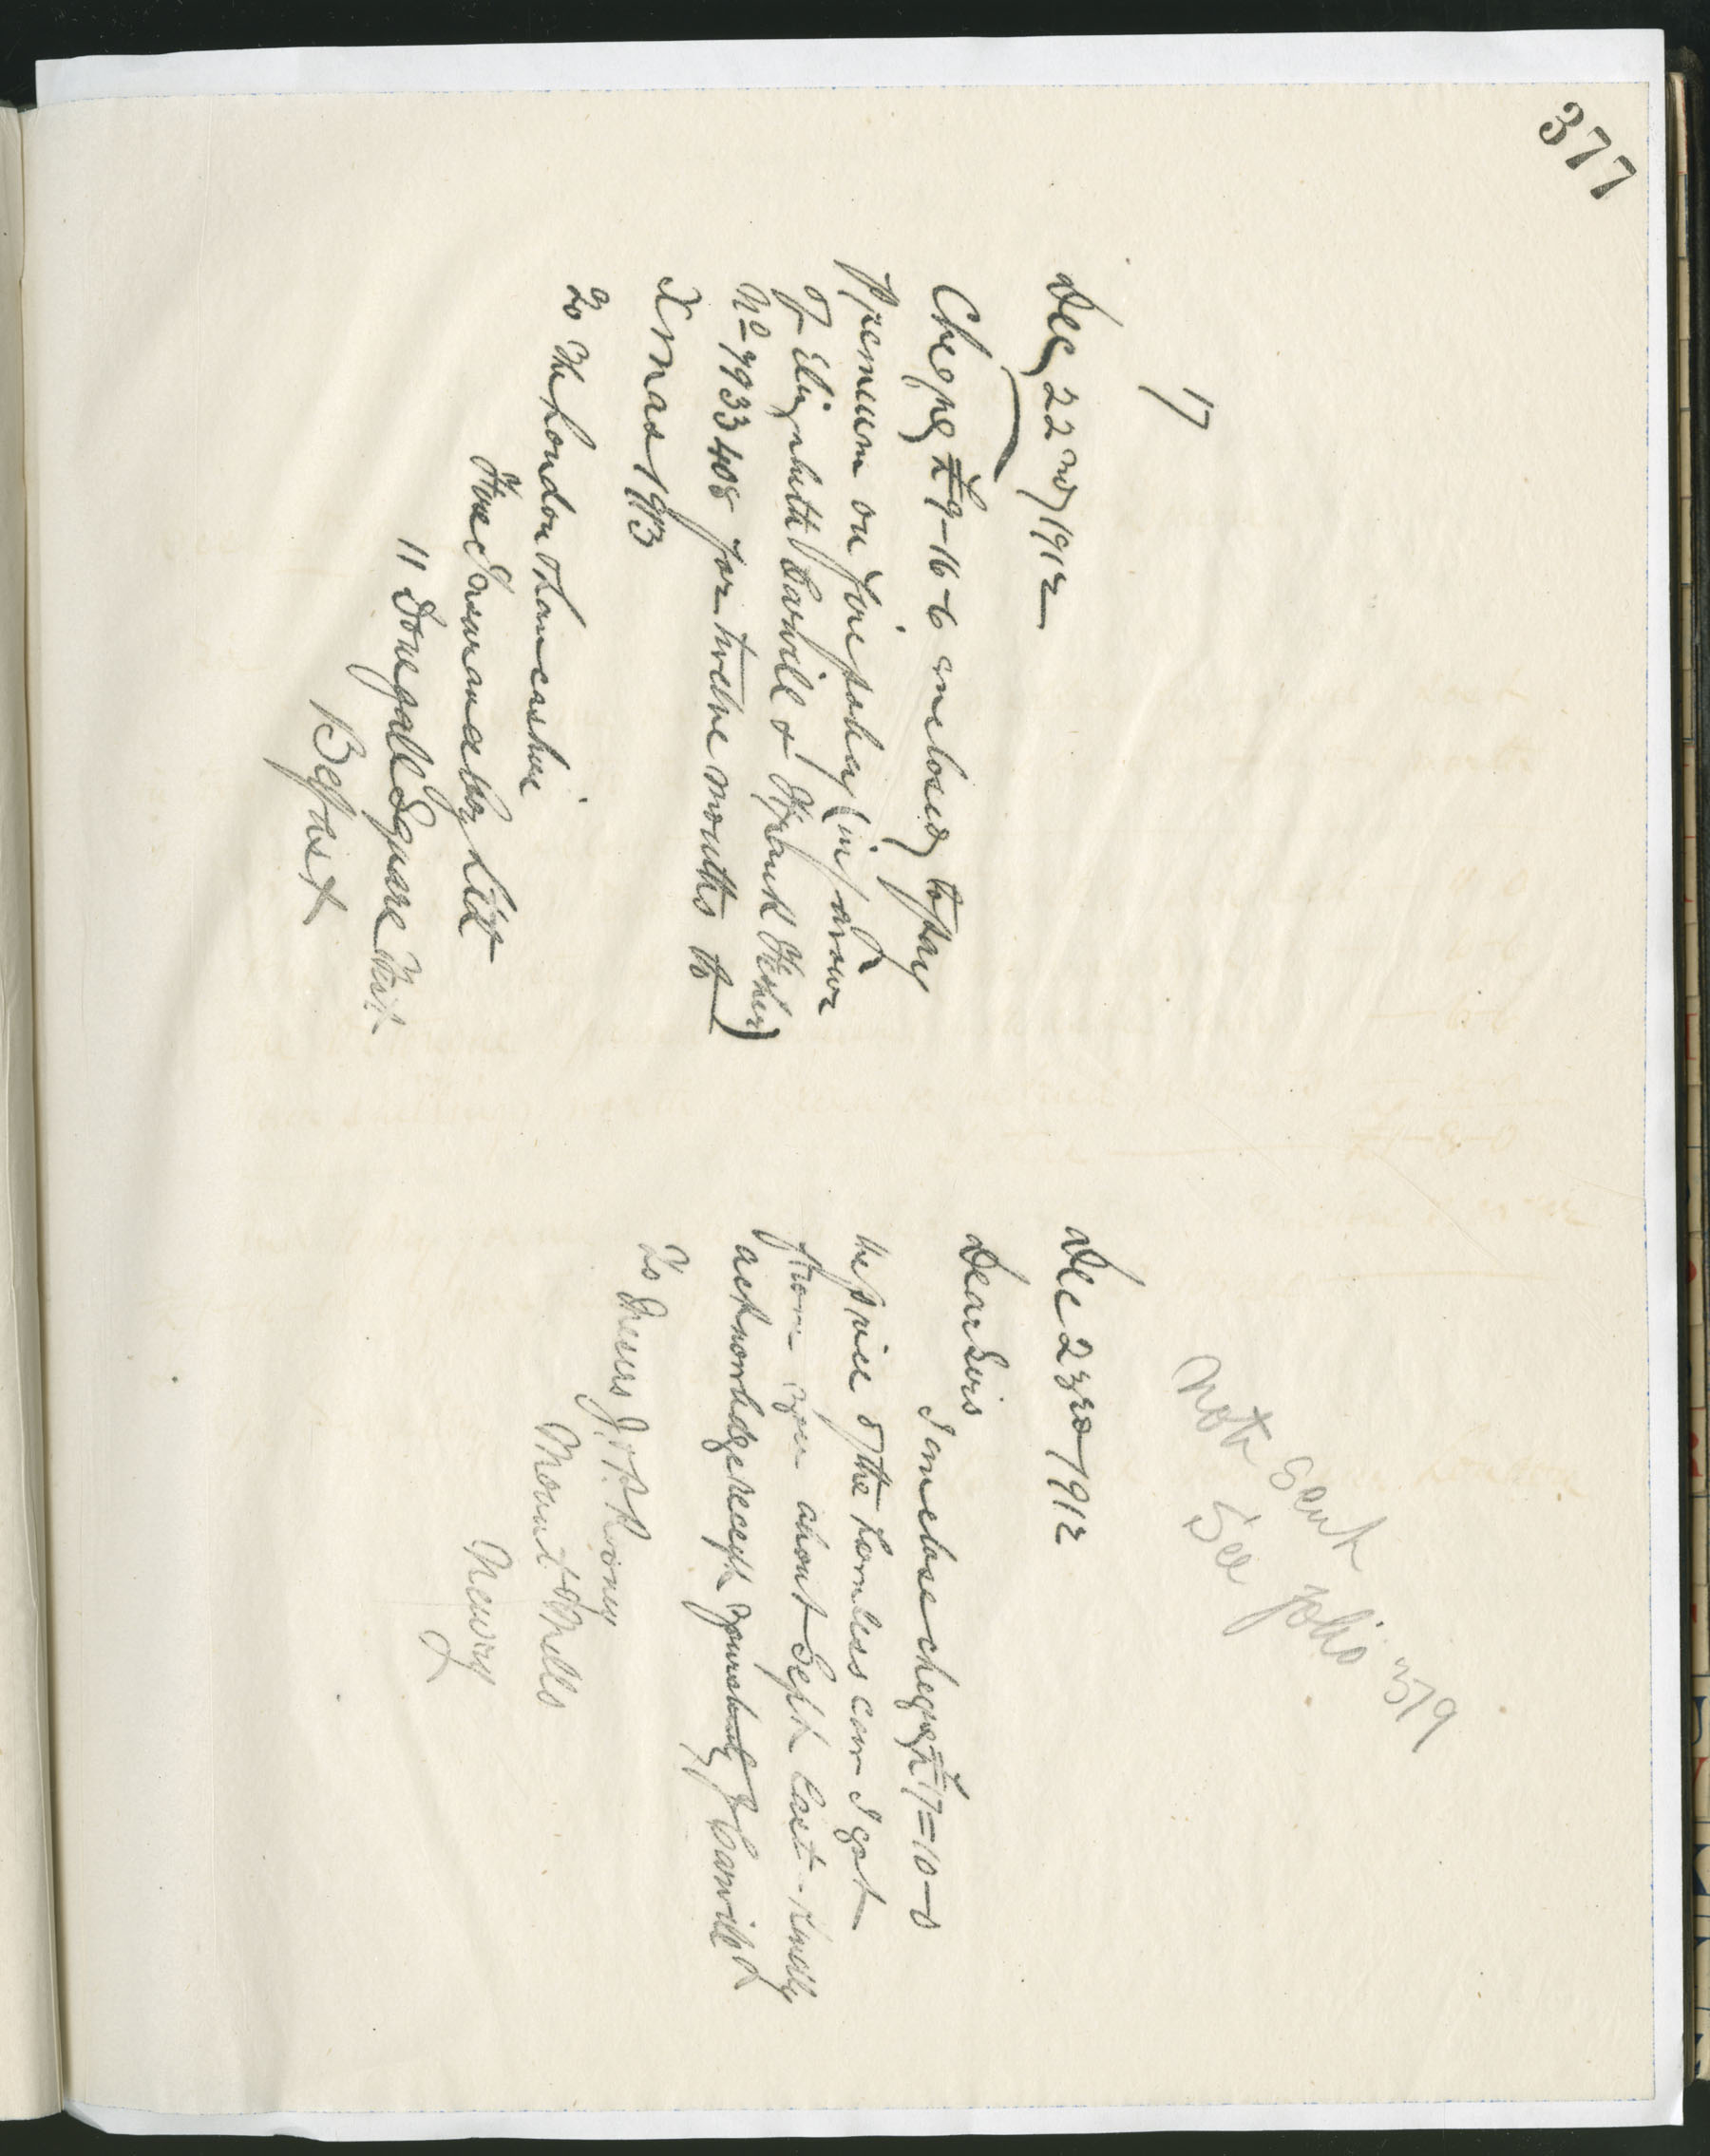 377
17
Dec 22nd 1912
Cheque £9-16-6 enclosed to pay
Premium on Fire policy (in favour
of Elizabeth Carvill & Frank Fisher)
No 7933408 for twelve months to
Xmas 1913
To The London & Lancashire
Fire Insurance Coy Ltd
11 Donegall Square West
Belfast
Not sent
See folio 379
Dec 23rd 1912
Dear Sirs
I enclose cheque £17=10-0
the price of the hornless cow I got
from you about Sept last - Kindly
acknowledge receipt yours truly J Carvill
To Messrs J. & P. Rooney
Mount Mills
Newry